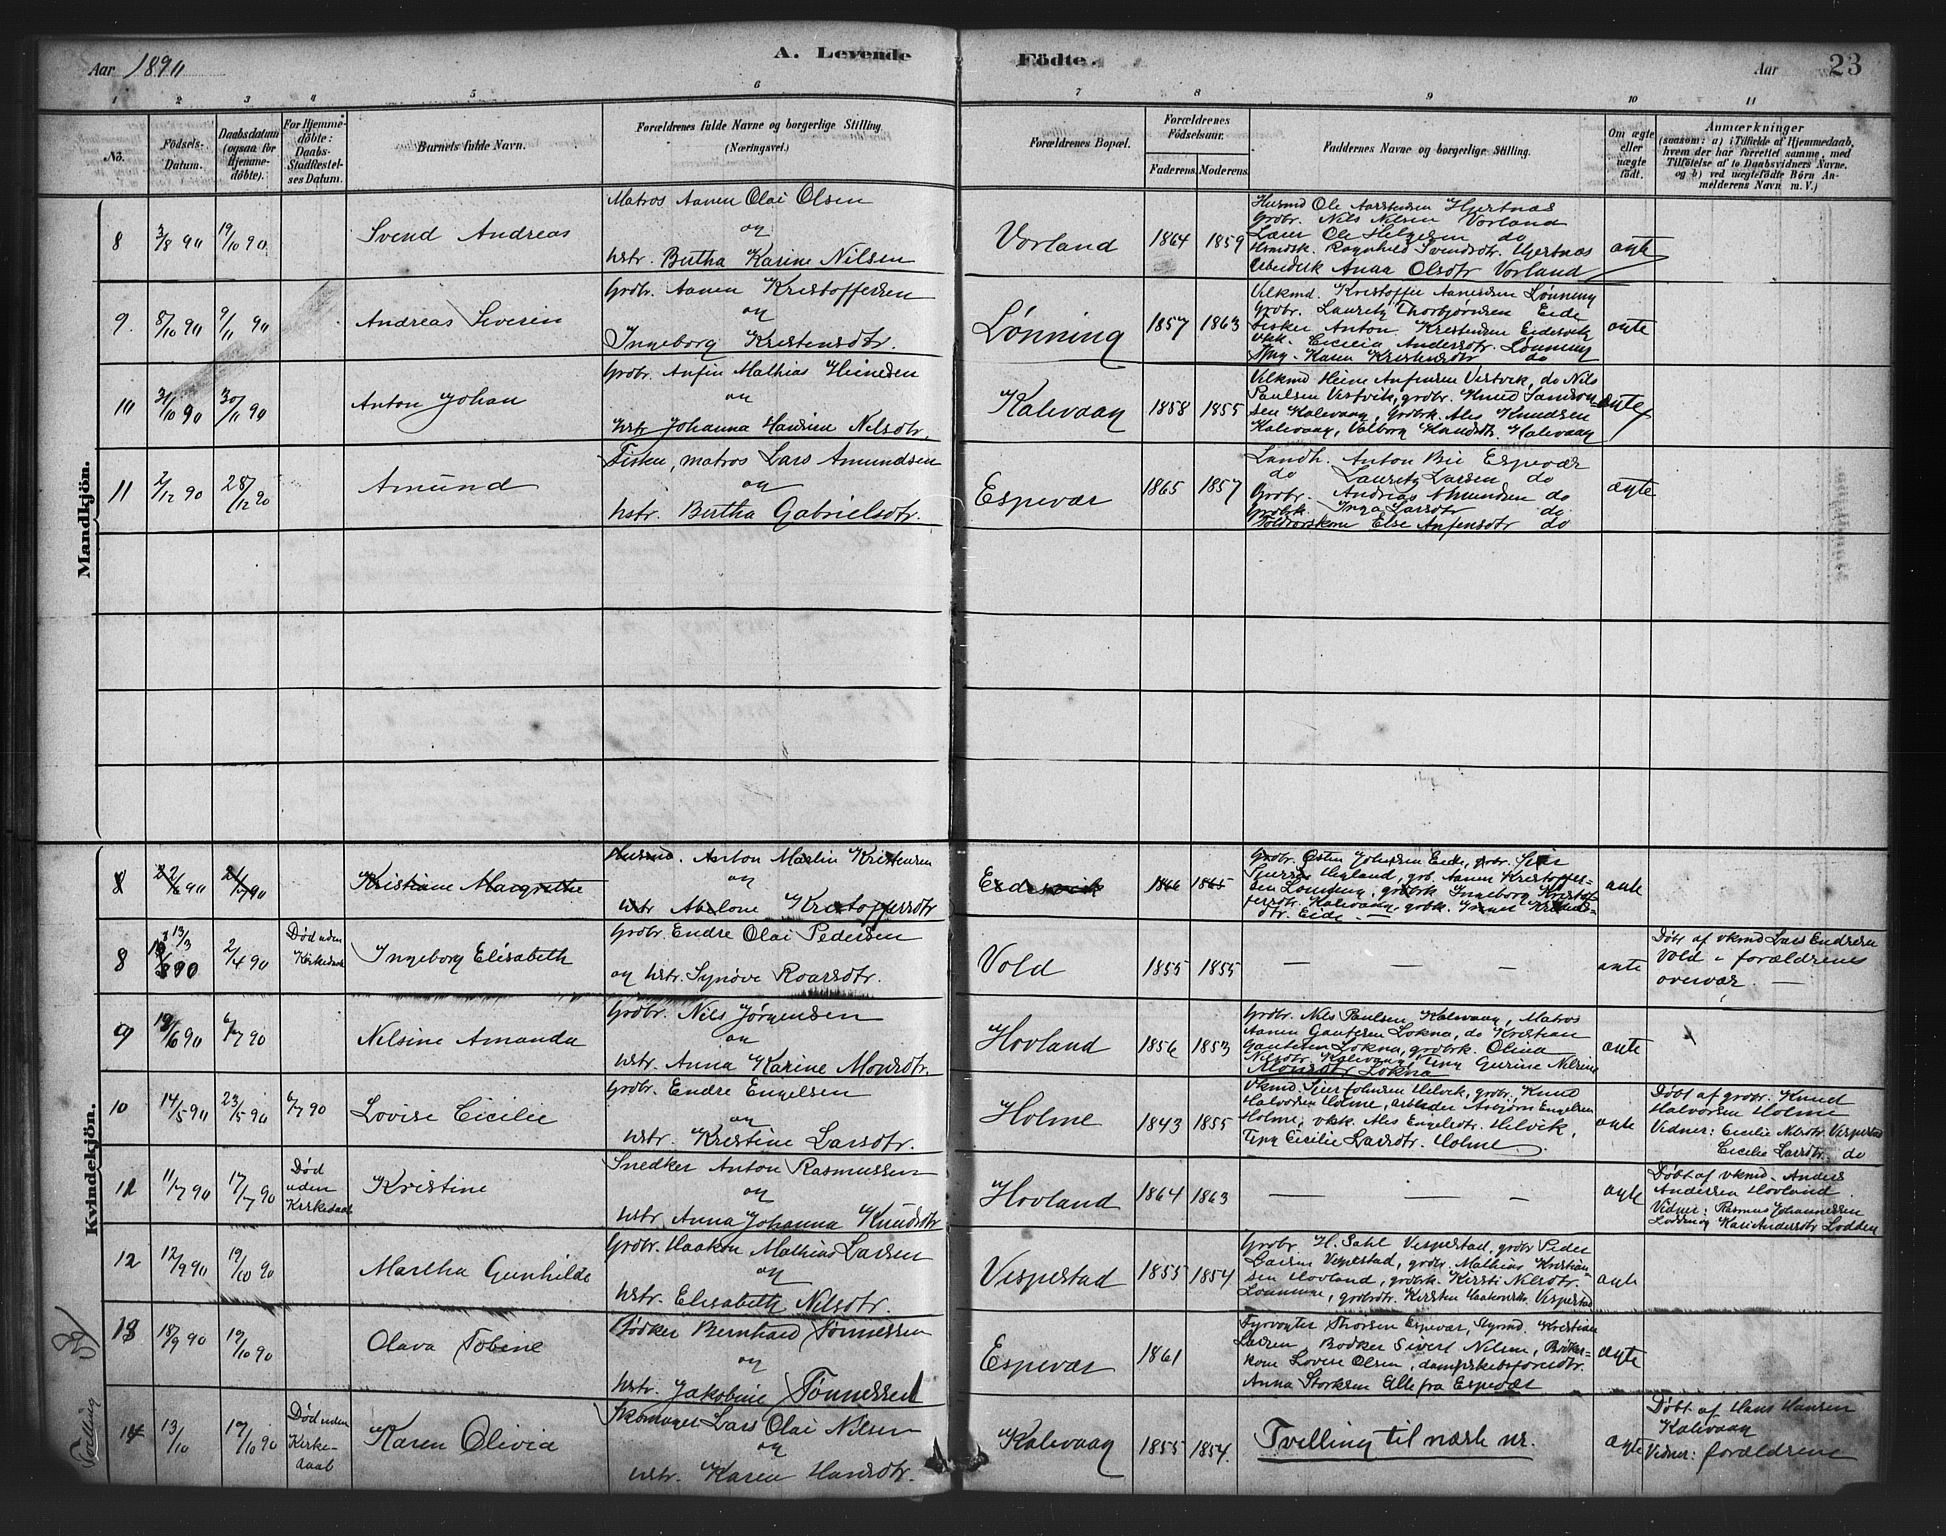 Aar 1890
A. Levende
Födte.
Aar
23
1 2 3 4 5 6 7 8 9 10 11
No.
Födsels-Datum.
Daabsdatum (ogsaa for Hjemme-döbte).
For Hjemme-döbte: Daabs-Stadfæstel-ses Datum.
Barnets fulde Navn.
Forældrenes fulde Navne og borgerlige Stilling (Næringsvei.)
Forældrenes Bopæl.
Forældrenes Födselsaar.
Faderens.
Moderens.
Faddernes Navne og borgerlige Stilling.
Om ægte eller uægte födt.
Anmærkninger
(saasom: a) i Tilfælde af Hjemmedaab,
hvem der har forrettet samme, med
Tilföielse af to Daabsvidners Navne,
og b) ved uægtefödte Börn An-
melderens Navn m. V.)
Mandkjön.
8
3/8 90
19/10 90
Svend Andreas
Matros Aanen Olai Olsen
og
hstr. Bertha Karine Nilsen
Vorland
1864
1859
Husmd Ole Aarstensen Hjertnæs
Grdbr. Nils Nilsen Vorland
Lærer Ole Helgesen do
Hmdsk. Ragnhild Svendsdtr. Hjertnæs
Arbeidersk Anna Olsdtr Vorland
ægte
9.
8/10 90
9/11 90
Andreas Severin
Grdbr. Aanen Kristoffersen
og
Ingeborg Kristensdtr.
Lønning
1857
1863
Vilkmd. Kristoffer Aanensen Lønning
Grdbr. Lauritz Thorbjørnsen Eide
Fisker Anton Kristensen Eidesvik
Vksk. Cecilia Andersdtr. Lønning
Karen Kristensdtr do
ægte
10
31/10 90
30/11 90
Anton Johan
Grdbr. Anfin Mathias Heinesen
og
hstr Johanna Hansine Nilsdtr.
Kalevaag
1858
1855
Vilkmd Heine Anfinsen Vestvik, do Nils
Paulsen Vestvik, grdbr. Knud Samson-
sen Kalevaag, Grdbrk. Ales Knudsen
Kalevaag, Valborg Knudsdtr. Kalevaag
ægte
11
2/12 90
28/12 90
Amund
Fisker, matros Lars Amundsen
og
hstr. Bertha Gabrielsdtr.
Espevær
1865
1857
Landh. Anton Bie Espevær
do Lauritz Larsen do
Grdbr. Andreas Amundsen do
Grdbrk. Inga Larsdtr do
Else Anfensdtr do
ægte
Kvindekjön.
8
22/6 90
21/7 90
Kristiane Margrethe
Husmd. Anton Martin Kristensen
og
hstr Abelone Kristoffersdtr
Eidesvik
1866
1865
Grdbr. Østen Johnsen Eide, grdbr. Sjur
Sjursen Høyland, grb. Aanen Kristoffer-
sen Lønning, grdbrk Ingeborg Kristof-
fersdtr. Kalevaag, grdbk.
dtr. Eide. —
ægte
8
19/3
890
2/4 90
Død uden
Kirkedaab
Ingeborg Elisabeth
Grdbr. Endre Olai Pedersen
og hstr. Synøve Roarsdtr.
Vold
1855
1855
— — —
ægte
Døbt af vkmd Lars Endresen
Vold i forældrenes
overvær. —
9
19/6 90
6/7 90
Nilsine Amanda
Grdbr. Nils Jørgensen
og
hstr. Anna Karine Monsdtr.
Hovland
1856
1853
Grdbr. Nils Paulsen Kalevaag, Matros
Aanen Gautesen Lokna, do Kristian
Gautesen Lokna, grdbrk. Olina
Nilsdtr. Kalevaag, Ting Gurine Nilsine
Monsdtr Lokna
ægte
10
14/5 90
23/5 90
6/7 90
Lovise Cicilie
Grdbr. Endre Engelsen
og
hstr. Kristine Larsdtr.
Holme
1843
1855
Vkmd. Sjur Johnsen Helvik, grdbr. Knud
Halvorsen Holme, arbeider Asbjørn Engelsen
Holme, vksk. Ales Engelsdtr. Helvik,
Ting Cicilie Larsdtr. Holme
ægte
Døbt af grdbr. Knud
Halvorsen Holme
Vidner: Cecilie Nilsdtr. Vespestad
Cecilie Larsdtr. do
11
11/7 90
17/7 90
Død
uden
Kirkedaab
Kristine
Snedker Anton Rasmussen
og
hstr. Anna Johanna Knudsdtr
Hovland
1864
1863
— — —
ægte
Døbt af vkmd. Anders
Andersen Hovland.
Vidner: Rasmus Johannessen
Lodden og Kari Andersdtr Lodden
12
12/9 90
19/10 90
Martha Gunhilde
Grdbr. Haakon Mathias Larsen
og
hstr. Elisabeth Nilsdtr.
Vespestad
1855
1854
Grdbr. H. Dahl Vespestad, grdbr Peder
Larsen Vespestad, grdbr. Mathias Kristian-
sen Hovland, grdbrk. Kirsti Nilsdtr.
Lønning, grdbrdtr. Kirsten Haakonsdtr. Vespestad
ægte
13
18/9 90
19/10 90
Olava Tobine
Bødker Bernhard Tønnessen
og
hstr. Jakobine Tønnessen
Espevær
1861
Fyrvogter Thorsen Espevær, Styrmd. Kristian
Larsen, Bødker Sivert Nilsen, Bødker-
kone Lovise Olsen, dampskibsførerdtr.
Anna Storksen Alle fra Espevær
ægte
Tvilling
14
13/10
19/10 90
Død uden
Kirke-
daab
Karen Olivia
Skomager Lars Olai Nilsen
og
hstr. Karen Hansdtr.
Kalevaag
1855
1854.
Tvilling til næste nr.
ægte
Døbt af Hans Hansen
Kalevaag
Vidner: forældrene